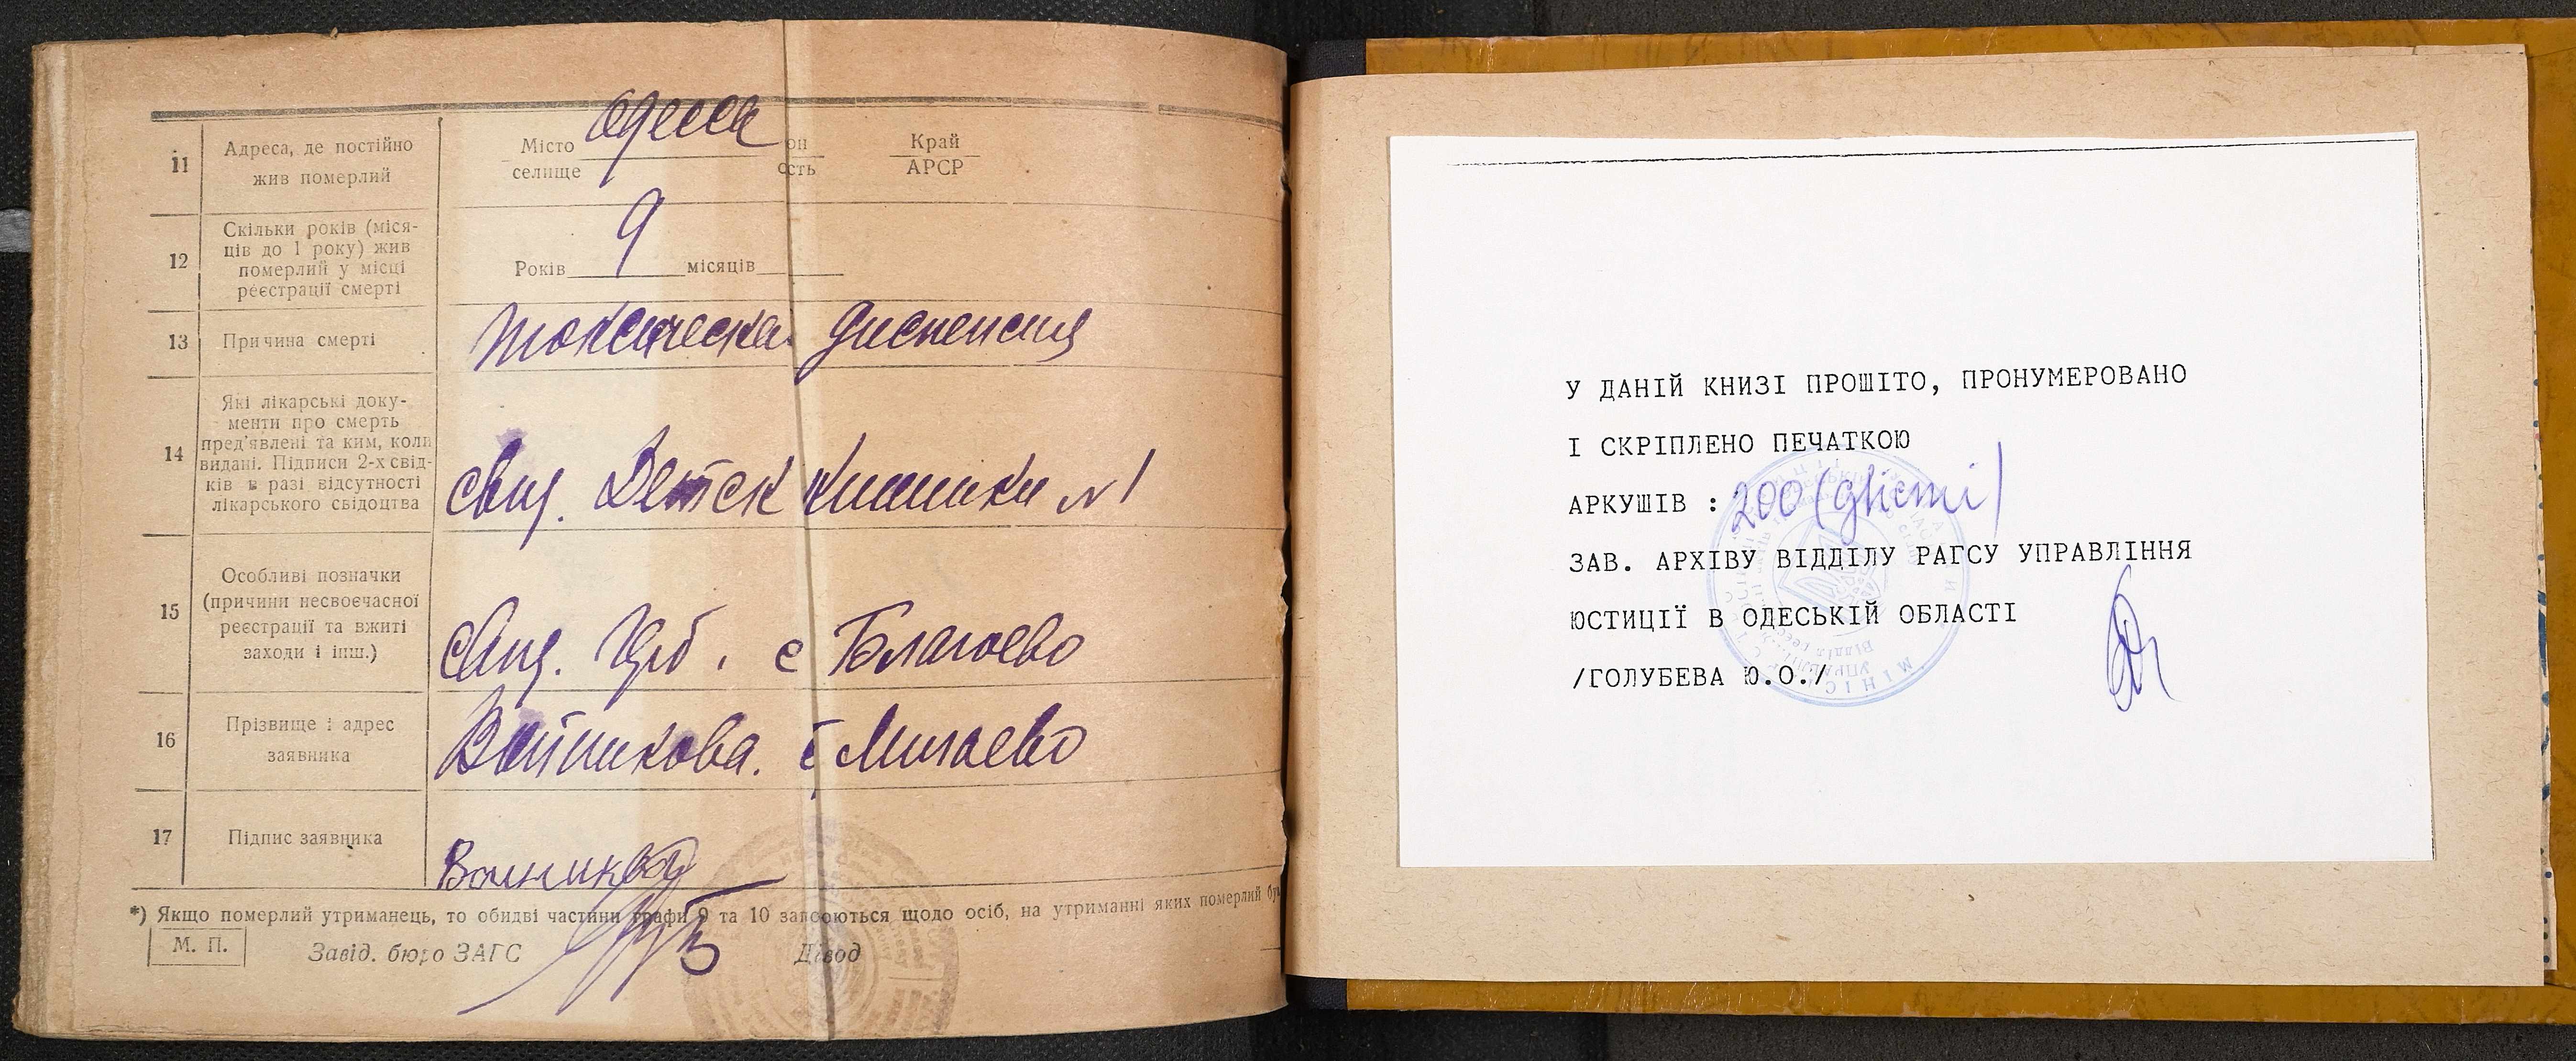 11
Адреса, де постійно
жив померлий
Місто Одесса он Край
селище сть АРСР
12
Скільки років (міся-
ців до 1 року) жив
померлий у місці
реєстрації смерті
Років 9 місяців
13
Причина смерті
Токсическая диспепсия
14
Які лікарські доку-
менти про смерть
пред'явлені та ким, коли
видані. Підписи 2-х свід-
ків в разі відсутності
лікарського свідоцтва
Детск клиники №1
15
Особливі позначки
(причини несвоєчасної
реєстрації та вжиті
заходи і інш.)
с Благоево
16
Прізвище і адрес
заявника
Войникова. с Мигаево
17
Підпис заявника
Войникова
*) Якщо померлий утриманець, то обидві частини графи 9 та 10 заповоються щодо осіб, на утриманні яких померлий бу
М. П. Завід. бюро ЗАГС Дівод
У ДАНІЙ КНИЗІ ПРОШІТО, ПРОНУМЕРОВАНО
І СКРІПЛЕНО ПЕЧАТКОЮ
АРКУШІВ : 200 (двісті)
ЗАВ. АРХІВУ ВІДДІЛУ РАГСУ УПРАВЛІННЯ
ЮСТИЦІЇ В ОДЕСЬКІЙ ОБЛАСТІ
/ГОЛУБЕВА Ю.О./